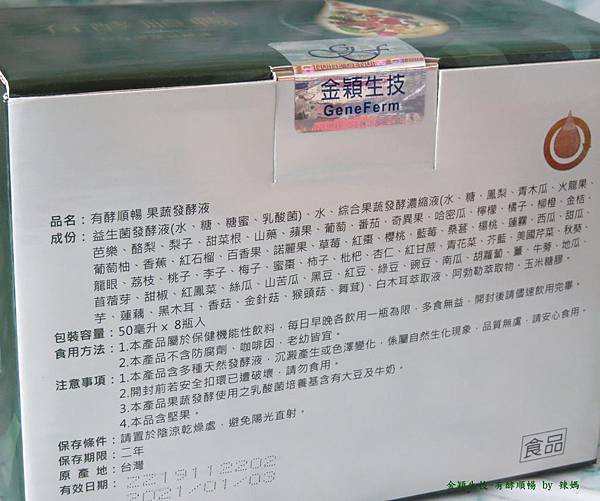 金穎生技
GeneFerm
品名：有酵順暢 果蔬發酵液
成份：益生菌發酵液(水、糖、糖蜜、乳酸菌)、水、綜合果蔬發酵濃縮液(水、糖、鳳梨、青木瓜、火龍果、
芭樂、酪梨、梨子、甜菜根、山藥、蘋果、葡萄、番茄、奇異果、哈密瓜、檸檬、橘子、柳橙、金桔、
葡萄柚、香蕉、紅石榴、百香果、諾麗果、草莓、紅棗、櫻桃、藍莓、桑葚、楊桃、蓮霧、西瓜、甜瓜、
龍眼、荔枝、桃子、李子、梅子、蜜棗、柿子、枇杷、杏仁、紅甘蔗、青花菜、芥藍、美國芹菜、秋葵、
苜蓿芽、甜椒、紅鳳菜、絲瓜、山苦瓜、黑豆、紅豆、綠豆、豌豆、南瓜、胡蘿蔔、薑、牛蒡、地瓜、
芋、蓮藕、黑木耳、香菇、金針菇、猴頭菇、舞茸)、白木耳萃取液、阿勃勒萃取物、玉米糖膠。
包裝容量：50毫升 x 8瓶入
食用方法：1.本產品屬於保健機能性飲料，每日早晚各飲用一瓶為限，多食無益，開封後請儘速飲用完畢。
2.本產品不含防腐劑、咖啡因，老幼皆宜。
注意事項：1.本產品含多種天然發酵液，沉澱產生或色澤變化，係屬自然生化現象，品質無慮，請安心食用。
2.開封前若安全扣環已遭破壞，請勿食用。
3.本產品果蔬發酵使用之乳酸菌培養基含有大豆及牛奶。
4.本品含堅果。
保存條件：請置於陰涼乾燥處，避免陽光直射。
保存期限：二年
原 產 地：台灣
有效日期：2219112202
2021/01/03
食品
金穎生技 有酵順暢 by 辣媽